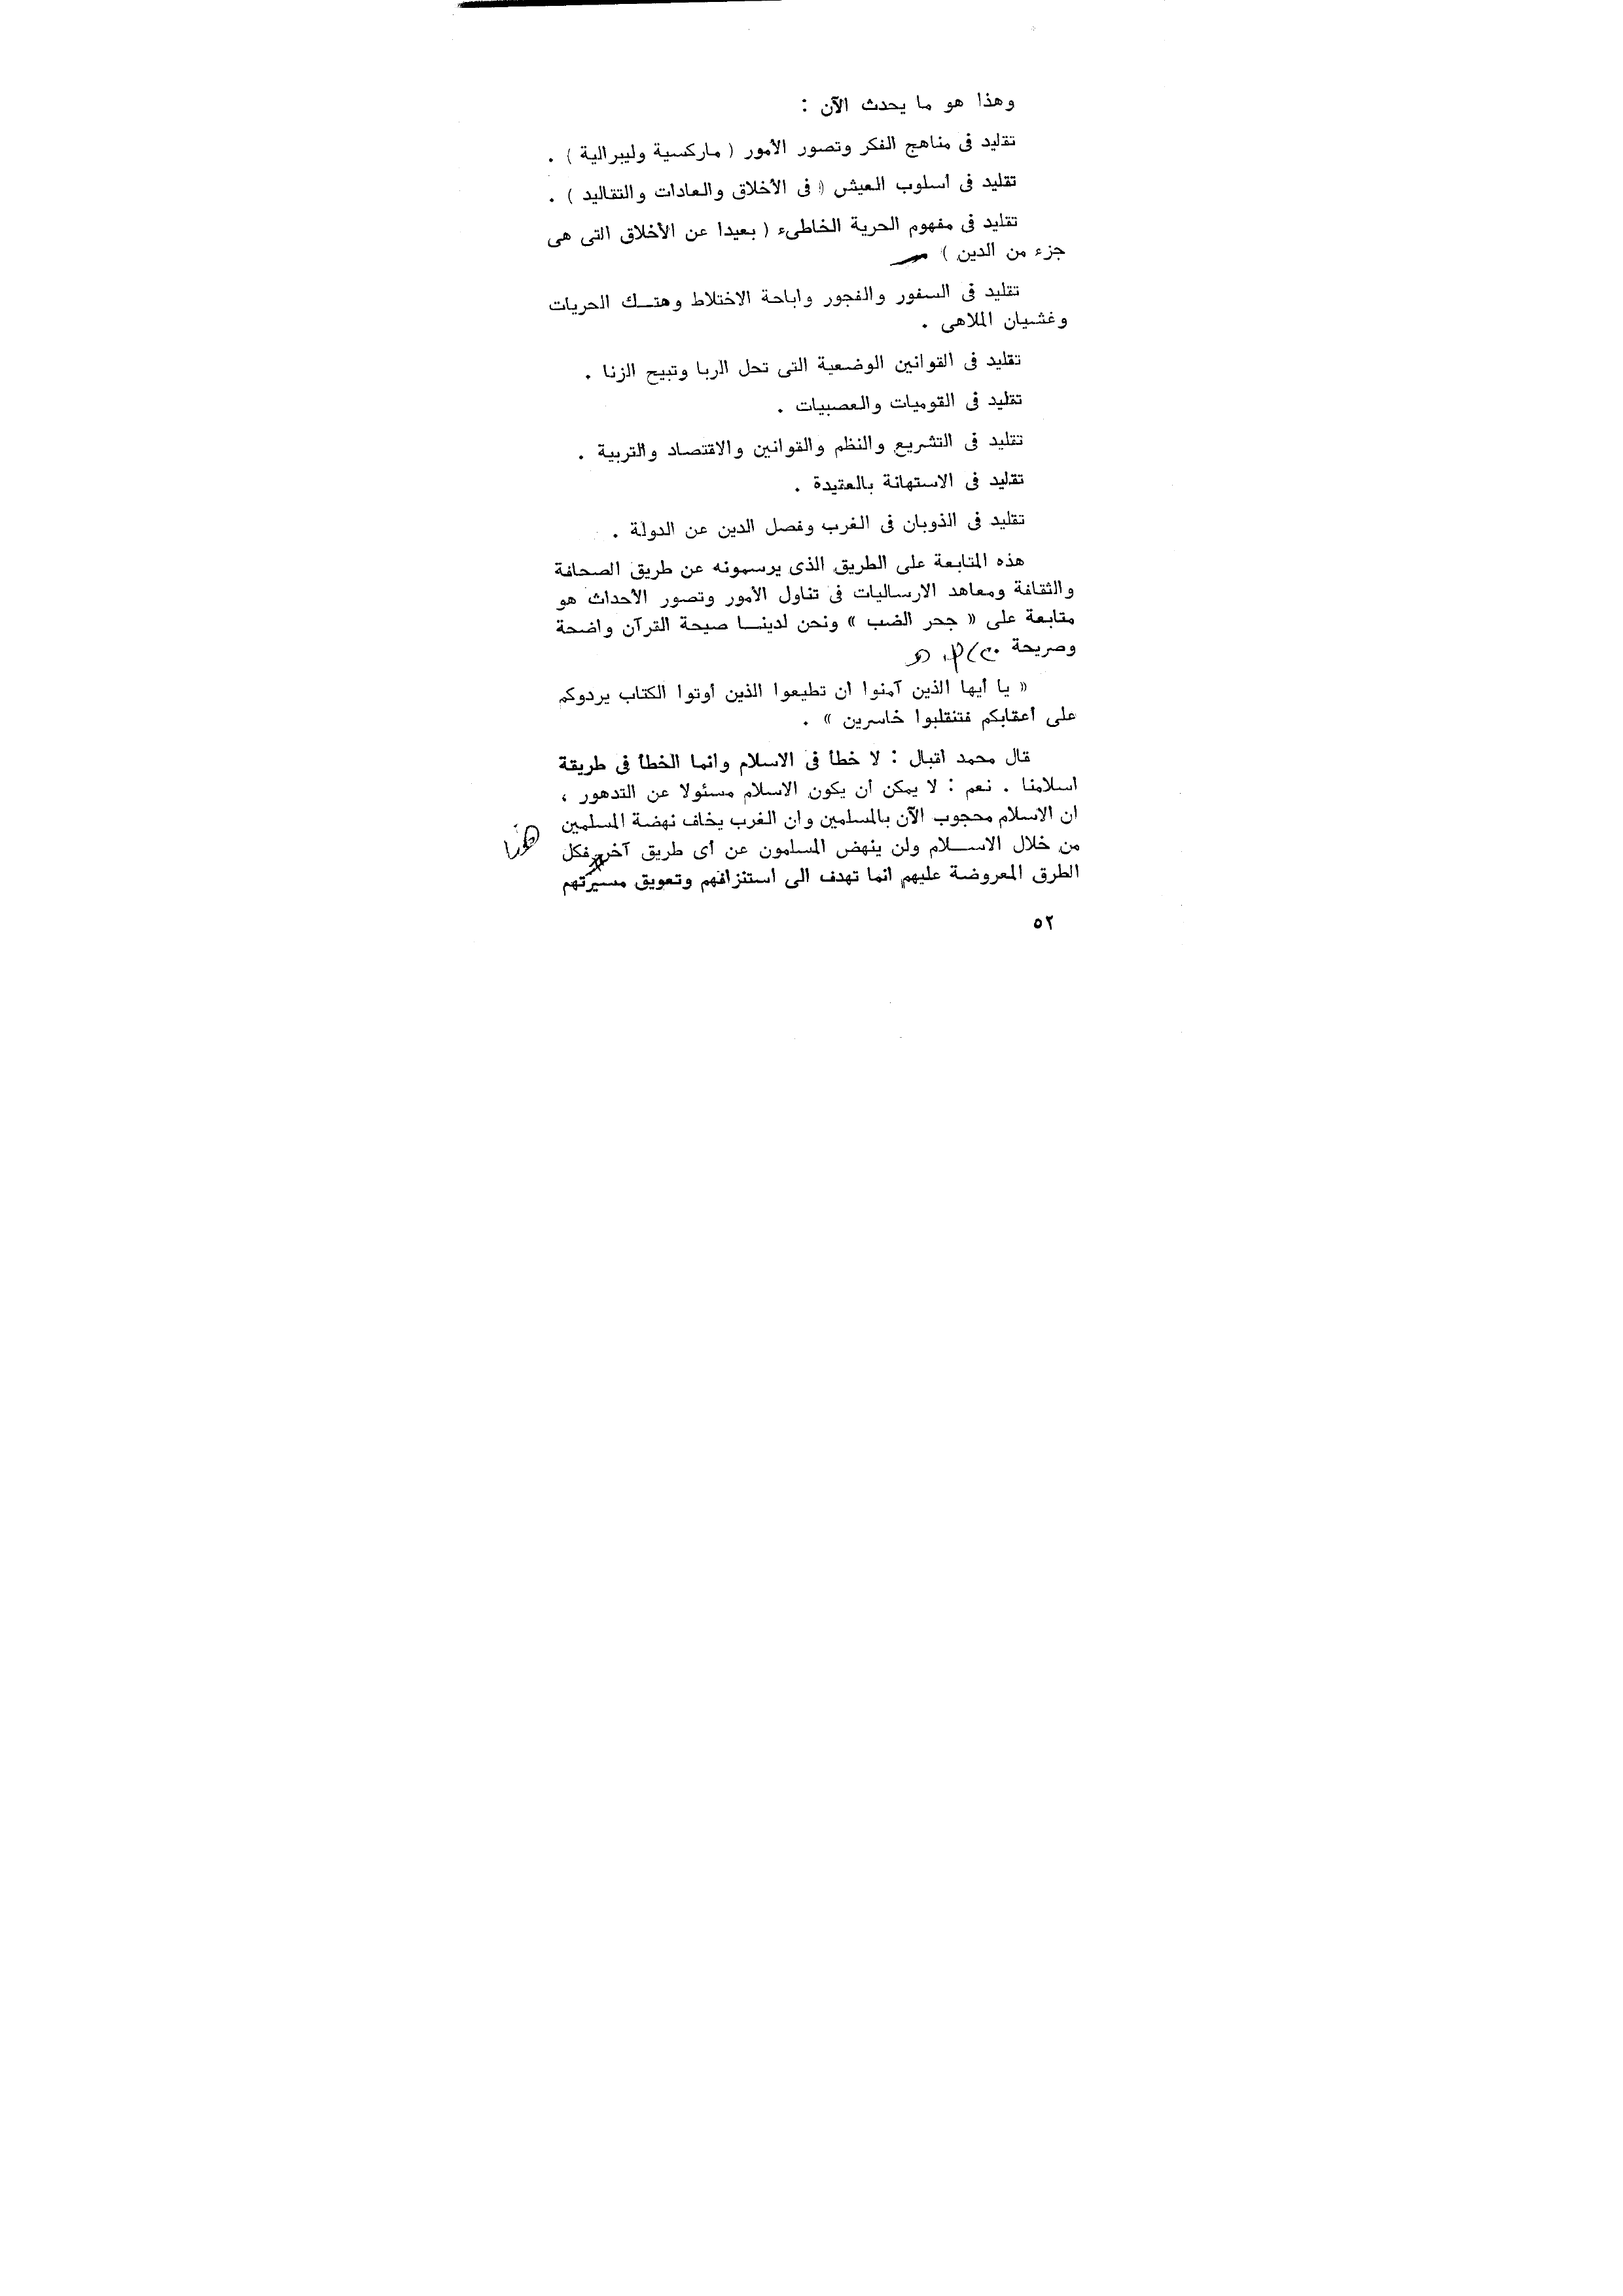 وهذا هو ما يحدث الآن :
تقليد فى مناهج الفكر وتصور الأمور ( ماركسية وليبرالية ) .
تقليد فى أسلوب العيش ( فى الأخلاق والعادات والتقاليد ) .
تقليد فى مفهوم الحرية الخاطىء ( بعيدا عن الأخلاق التى هى
جزء من الدين )
تقليد فى السفور والفجور واباحة الاختلاط وهتـــك الحريات
وغشيان الملاهى .
تقليد فى القوانين الوضعية التى تحل الربا وتبيح الزنا .
تقليد فى القوميات والعصبيات .
تقليد فى التشريع والنظم والقوانين والاقتصاد والتربية .
تقليد فى الاستهانة بالعقيدة .
تقليد فى الذوبان فى الغرب وفصل الدين عن الدولة .
هذه المتابعة على الطريق الذى يرسمونه عن طريق الصحافة
والثقافة ومعاهد الارساليات فى تناول الأمور وتصور الأحداث هو
متابعة على « جحر الضب » ونحن لدينـــا صيحة القرآن واضحة
وصريحة
« يا أيها الذين آمنوا ان تطيعوا الذين أوتوا الكتاب يردوكم
على أعقابكم فتنقلبوا خاسرين » .
قال محمد اقبال : لا خطأ فى الاسلام وانما الخطأ فى طريقة
اسلامنا . نعم : لا يمكن أن يكون الاسلام مسئولا عن التدهور ،
ان الاسلام محجوب الآن بالمسلمين وان الغرب يخاف نهضة المسلمين
من خلال الاســـلام ولن ينهض المسلمون عن أى طريق آخر فكل
الطرق المعروضة عليهم انما تهدف الى استنزافهم وتعويق مسيرتهم
٥٢